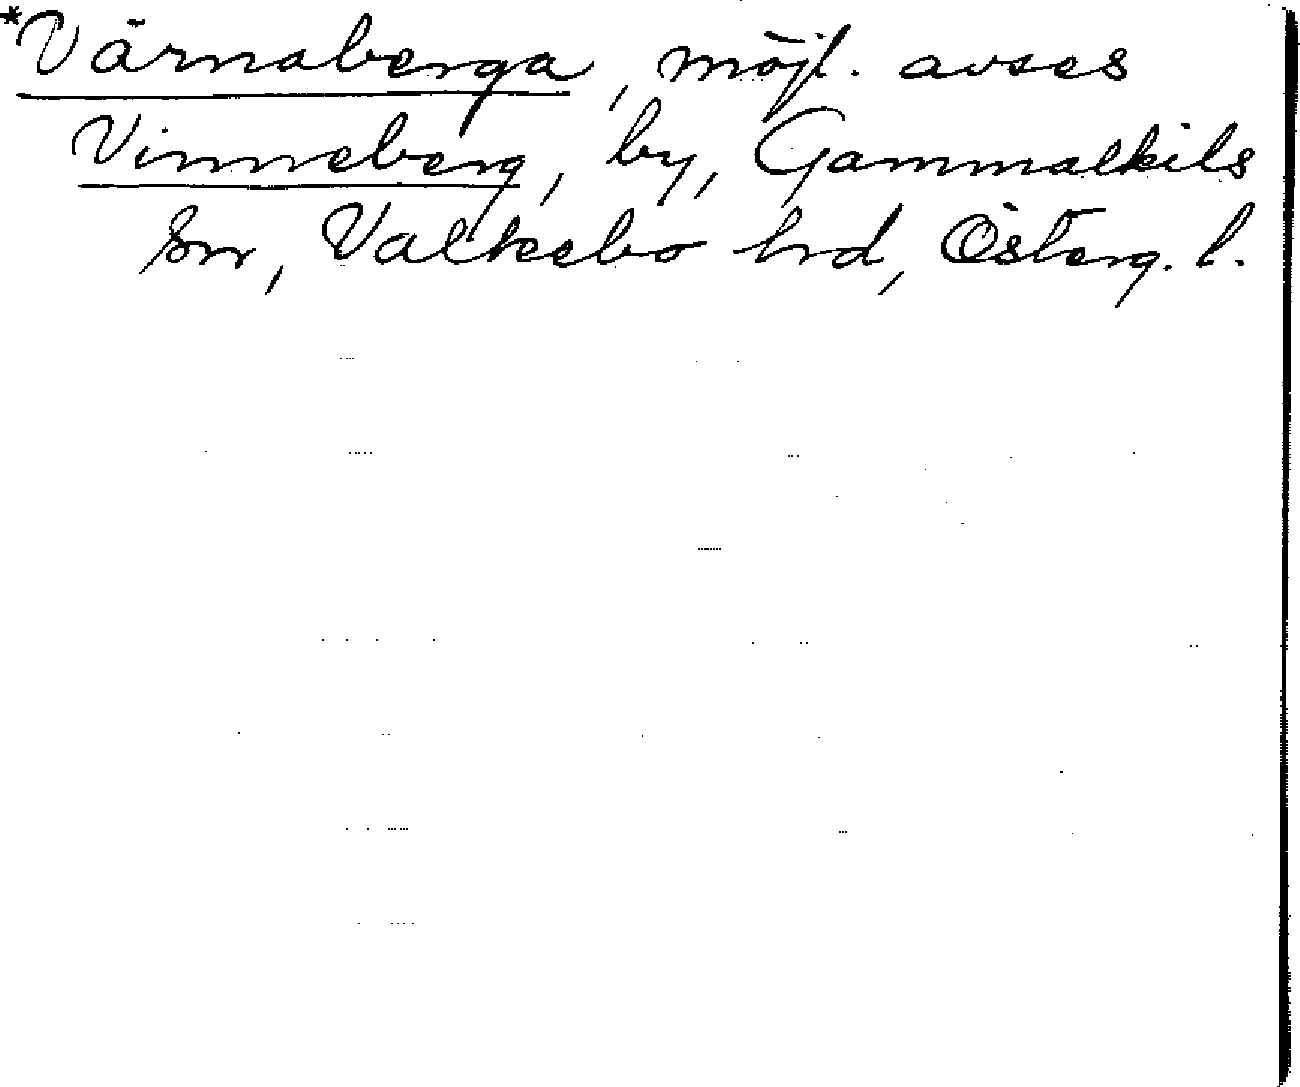 *Värnaberga, möjl. avses
Vinneberg, by, Gammalkils
sn, Valkebo hrd, Österg. l.